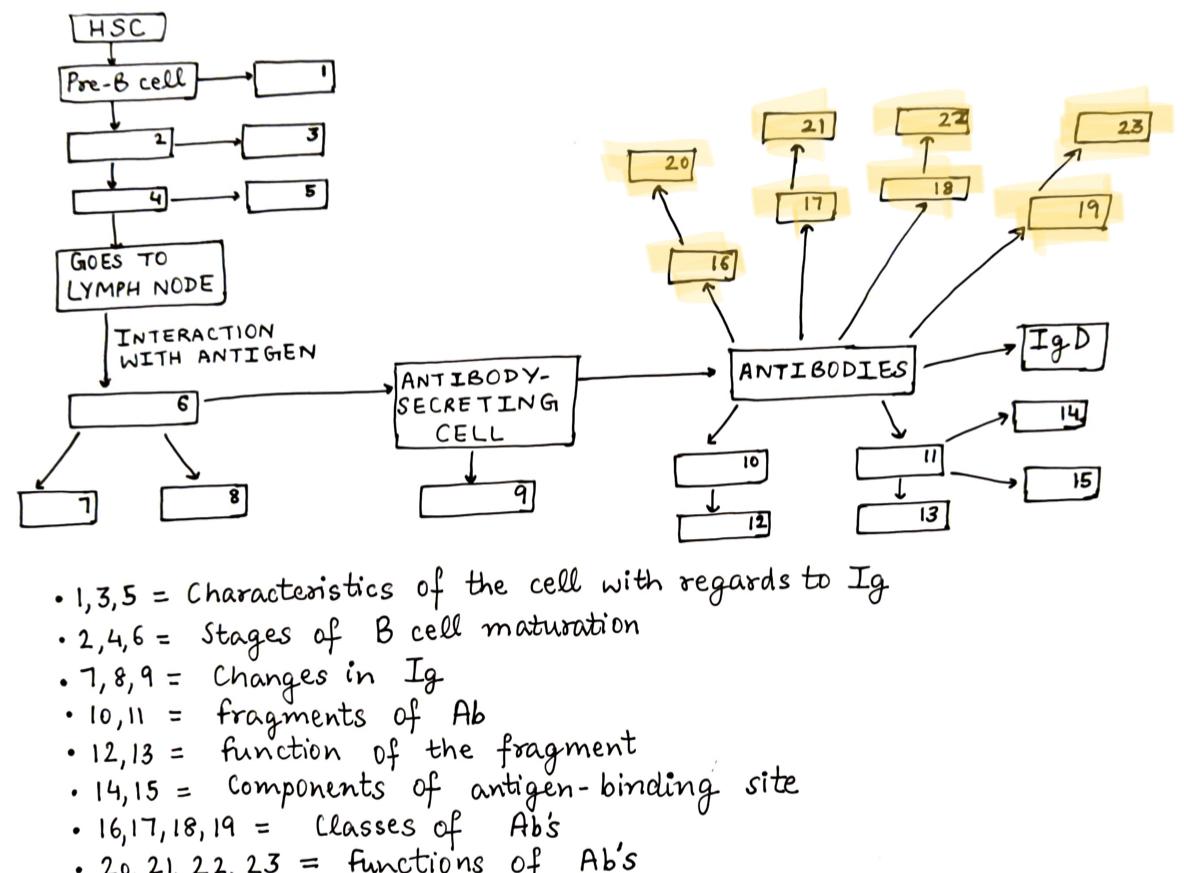 HSC
Pre-B cell
1
2
3
4
5
GOES TO
LYMPH NODE
INTERACTION
WITH ANTIGEN
6
7
8
ANTIBODY-
SECRETING
CELL
9
ANTIBODIES
IgD
10
11
12
13
14
15
16
17
18
19
20
21
22
23
• 1,3,5 = Characteristics of the cell with regards to Ig
• 2,4,6 = Stages of B cell maturation
• 7,8,9 = Changes in Ig
• 10,11 = fragments of Ab
• 12,13 = function of the fragment
• 14,15 = Components of antigen-binding site
• 16,17,18,19 = Classes of Ab's
• 20, 21, 22, 23 = functions of Ab's